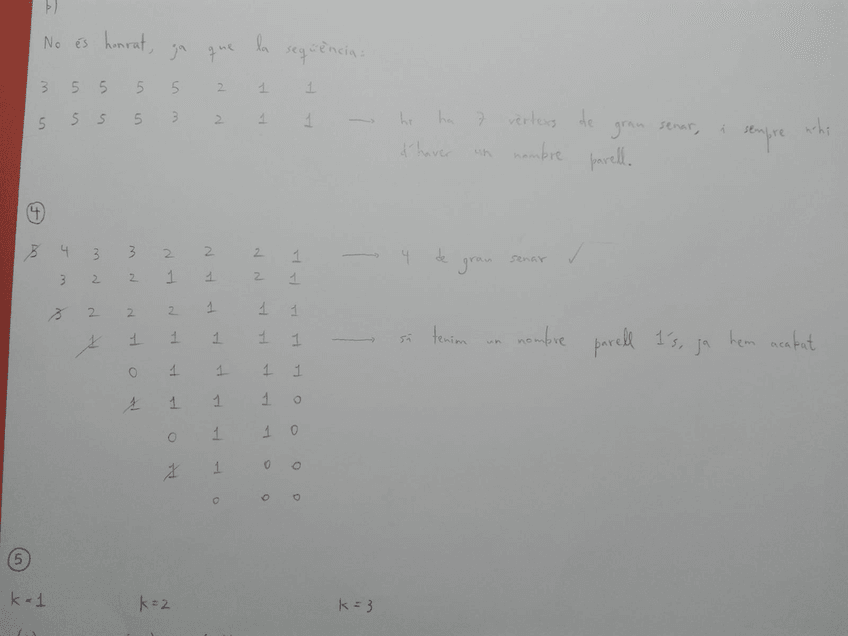 b)
No és honrat, ja que la seqüència:
3 5 5 5 5 2 1 1
5 5 5 5 3 2 1 1 → hi ha 7 vèrtexs de grau senar, i sempre n'hi
d'haver un nombre parell.
4
5 4 3 3 2 2 2 1 → 4 de grau senar ✓
3 2 2 1 1 2 1
3 2 2 2 1 1 1
1 1 1 1 1 1 → si tenim un nombre parell 1's, ja hem acabat
0 1 1 1 1
1 1 1 1 0
0 1 1 0
1 1 0 0
0 0 0
5
k=1 k=2 k=3